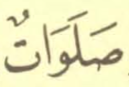 صَلَوَاتٌ